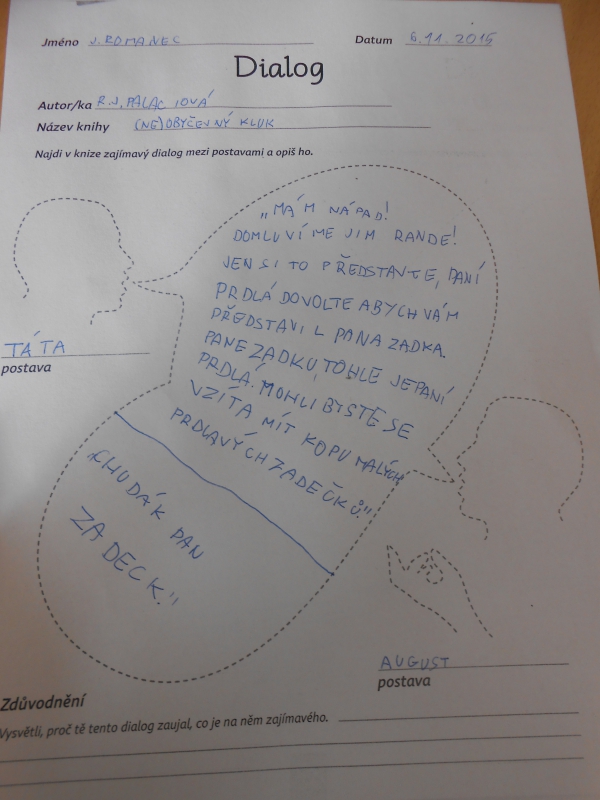 Jméno J. ROMANEC Datum 6.11.2015
Dialog
Autor/ka R.J. PALACIOVÁ
Název knihy (NE)OBYČEJNÝ KLUK
Najdi v knize zajímavý dialog mezi postavami a opiš ho.
„MÁM NÁPAD!
DOMLUVÍME JIM RANDE!
JEN SI TO PŘEDSTAVTE, PANÍ
PRDLÁ DOVOLTE ABYCH VÁM
PŘEDSTAVIL PANA ZADKA.
PANE ZADKU, TOHLE JE PANÍ
PRDLÁ. MOHLI BYSTE SE
VZÍT A MÍT KOPU MALÝCH
PRDLAVÝCH ZADEČKŮ."
TÁTA
postava
„CHUDÁK PAN
ZADECK."
AUGUST
postava
Zdůvodnění
Vysvětli, proč tě tento dialog zaujal, co je na něm zajímavého.